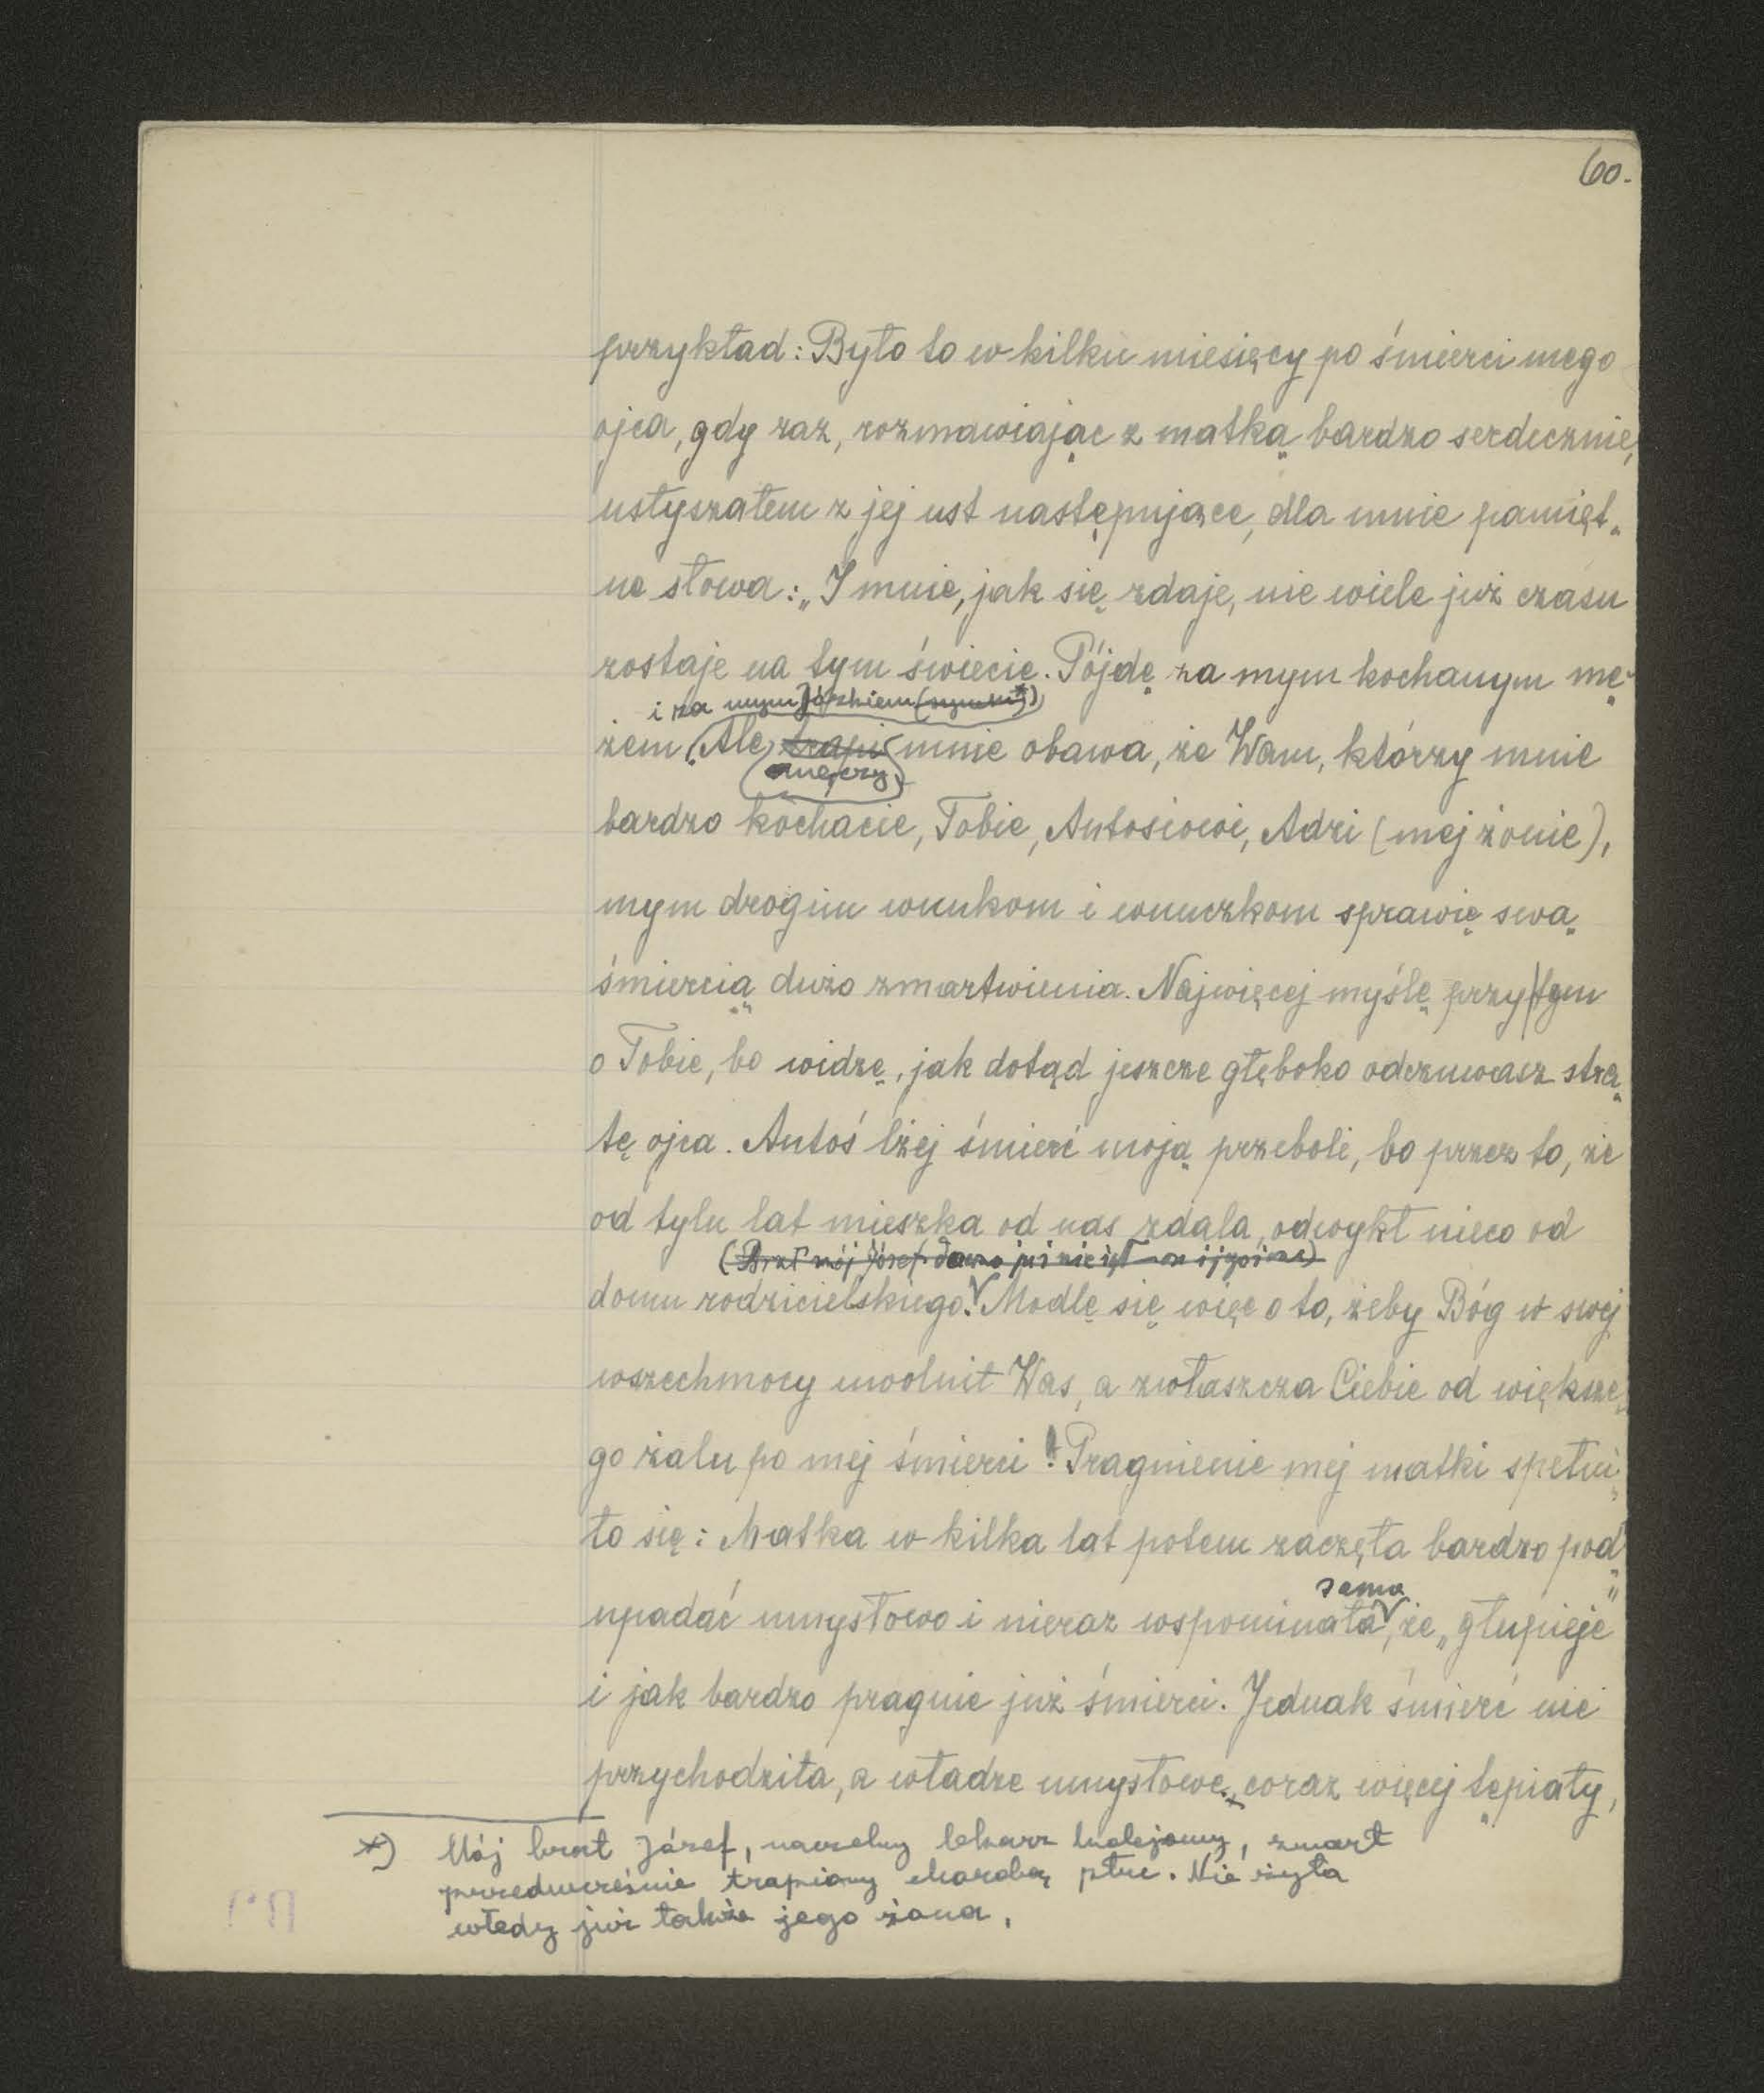 60.
przykład: Było to w kilku miesięcy po śmierci mego
ojca, gdy raz, rozmawiając z matką bardzo serdecznie,
usłyszałem z jej ust następujące, dla mnie pamięt„
ne słowa: „I mnie, jak się zdaje, nie wiele już czasu
zostaje na tym świecie. Pójdę za mym kochanym mę„
i za mym Józkiem (synem*))
żem. Ale trapi mnie obawa, że Wam, którzy mnie
męczy
bardzo kochacie, Tobie, Antosiowi, Adzi (mej żonie),
mym drogim wnukom i wnuczkom sprawię swą
śmiercią dużo zmartwienia. Najwięcej myślę przy|tym
o Tobie, bo widzę, jak dotąd jeszcze głęboko odczuwasz stra„
tę ojca. Antoś lżej śmierć moją przeboli, bo przez to, że
od tylu lat mieszka od nas zdala, odwykł nieco od
(Brat mój Józef dawno już nie żył)
domu rodzicielskiego. Modlę się więc o to, żeby Bóg w swej
wszechmocy uwolnił Was, a zwłaszcza Ciebie od większe„
go żalu po mej śmierci! Pragnienie mej matki spełni„
ło się: Matka w kilka lat potem zaczęła bardzo pod„
sama
upadać umysłowo i nieraz wspominała, że „głupieje"
i jak bardzo pragnie już śmierci. Jednak śmierć nie
przychodziła, a władze umysłowe, coraz więcej tępiały,
*) Mój brat Józef, naczelny lekarz kolejowy, zmarł
przedwcześnie trapiony chorobą płuc. Nie żyła
wtedy już także jego żona.